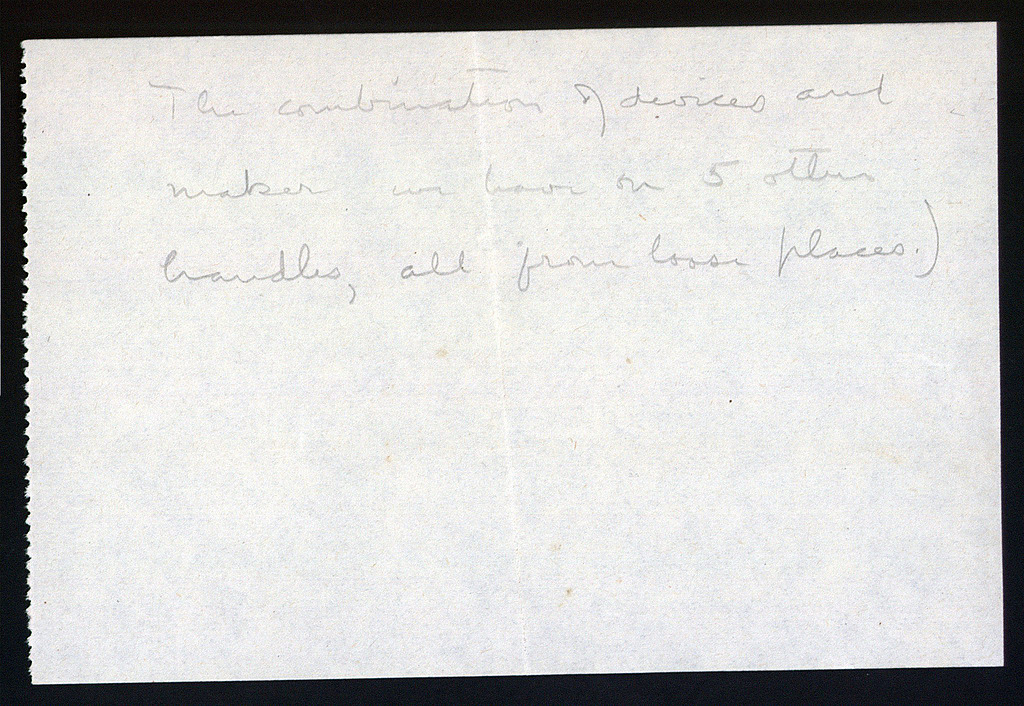 The combination of devices and
maker we have on 5 other
handles, all from loose places.)